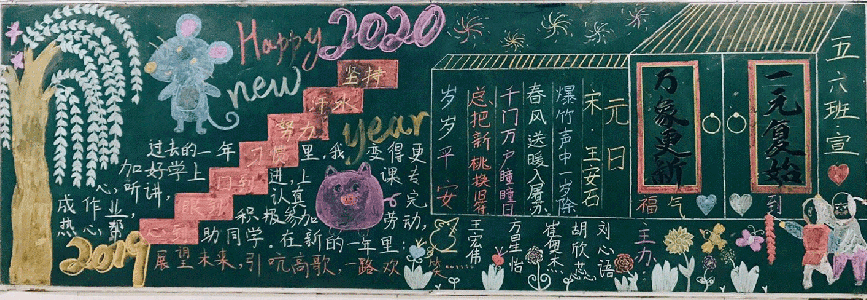 Happy 2020
new
year
坚持
汗水
努力
习惯
过去的一年
里,我变得更
加好学上
进,上课
听讲,
认真完
成作业
积极参加劳动,
热心帮
助同学。在新的一年里:
2019
展望未来,引吭高歌,一路欢笑……
岁岁平安
总把新桃换旧符
千门万户曈曈日
春风送暖入屠苏
爆竹声中一岁除
宋·王安石
元日
万象更新
一元复始
福气
到
五六班宣
主办:
刘心语
胡欣蕊
王宏伟